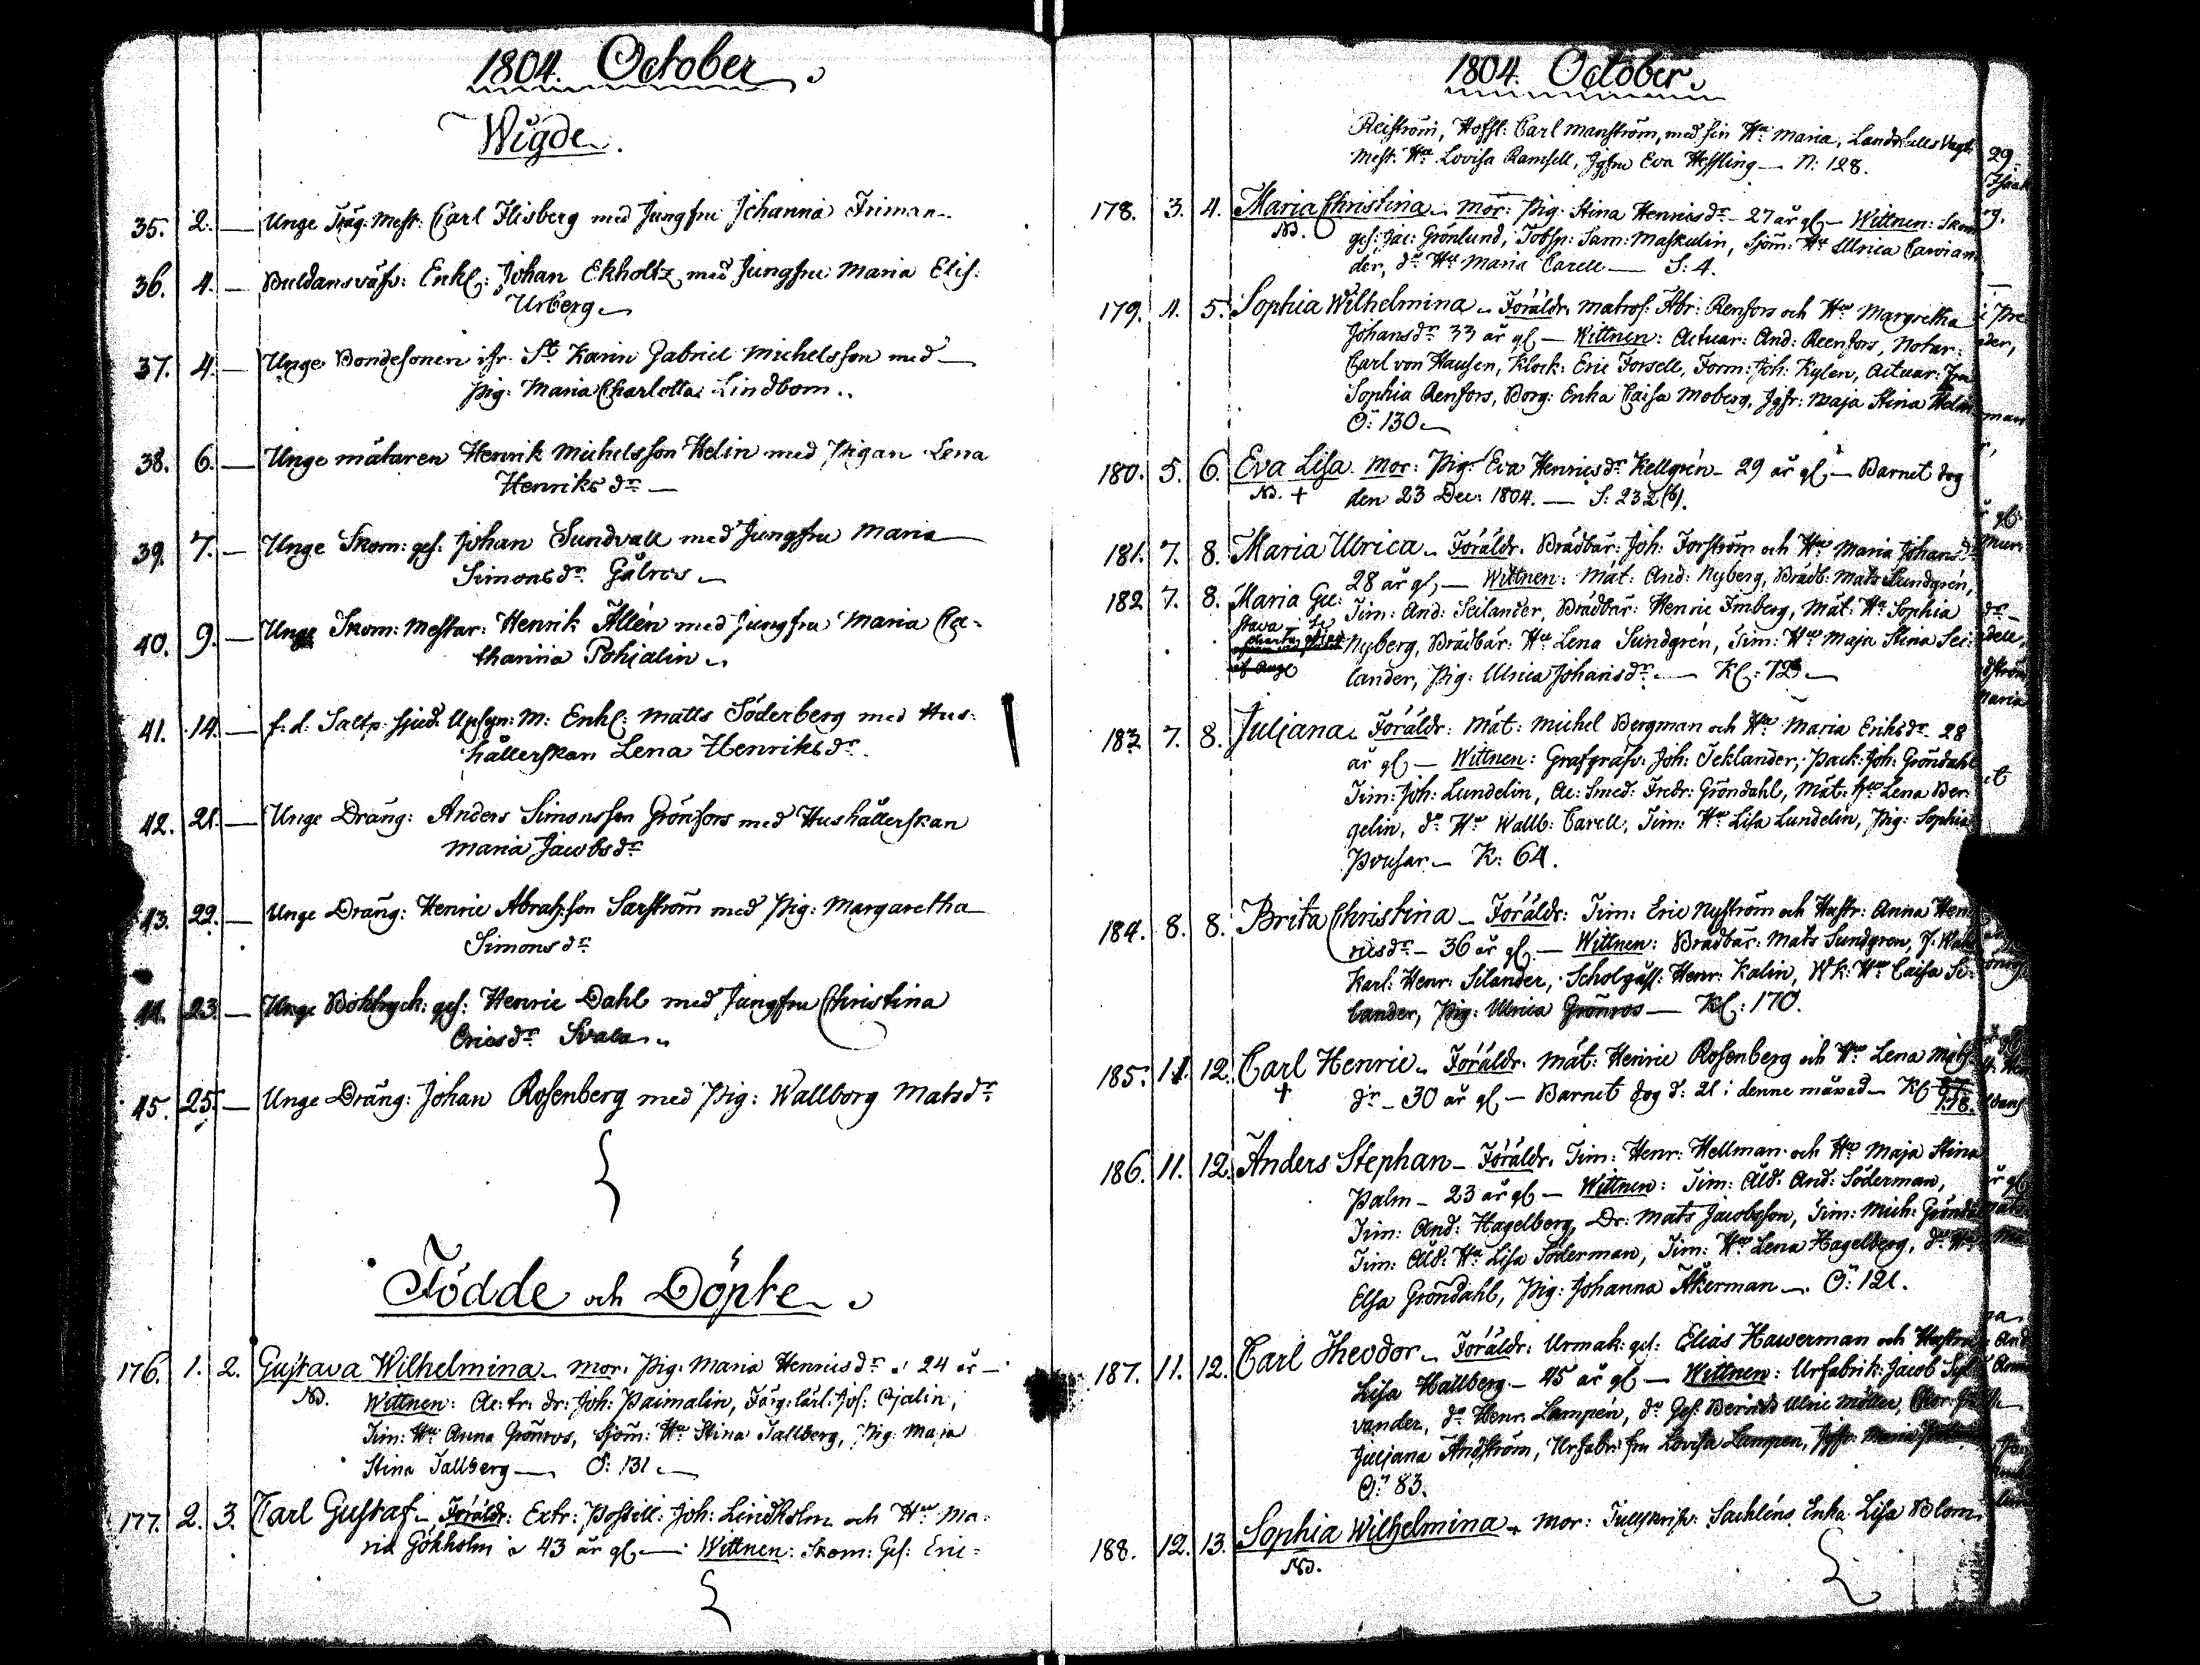 1804. October
Wigde.
35. 2. — Unge Träg: Mest: Carl Flisberg med Jungfru Johanna Friman
36. 4. — Buldansväfv: Enkl: Johan Ekholtz med Jungfru Maria Elis:
Urberg
37. 4. — Unge Bondesonen ifr. St Karin Gabriel Michelsson med
Pig: Maria Charlotta Lindbom
38. 6. — Unge mätaren Henrik Michelsson Helin med Pigan Lena
Henriksdr —
39. 7. — Unge Skom: ges: Johan Sundvall med Jungfru Maria
Simonsdr Gålros
40. 9. — Unge Skom: Mestar: Henrik Allén med Jungfru Maria Ca-
tharina Pohjalin
41. 14. — f. d. Saltp: sjud: Upsyn: M: Enkl: Matts Söderberg med Hus-
hållerskan Lena Henriksdr
42. 21. — Unge Dräng: Anders Simonsson Grönfors med Hushållerskan
Maria Jacobsdr
43. 22. — Unge Dräng: Henric Abrah:son Sarström med Pig: Margaretha
Simonsdr
44. 23. — Unge Boktryck: ges: Henric Dahl med Jungfru Christina
Ericsdr Svala
45. 25. — Unge Dräng: Johan Rosenberg med Pig: Wallborg Matsdr
Födde och Döpte
176. 1. 2. Gustava Wilhelmina. Mor: Pig: Maria Henricsdr: 24 år —
Nd. Wittnen: Ac: tr: dr: Joh: Paimalin, Färg: lärl: Jos: Ojalin,
Tim: Hu Anna Grönros, Sjöm: Hu Stina Tallberg, Pig: Maja
Stina Tallberg — Ö: 131
177. 2. 3. Carl Gustaf. Föräldr: Extr: Postill: Joh: Lindholm och Hu Ma-
ria Gökholm 43 år gl — Wittnen: Skom: Ges: Eric
1804. October
Reiström, Hoffl: Carl Manström, med sin Hu Maria,
Mest: Hu Lovisa Ramsell, Jgfru Eva Heffling — N: 128.
178. 3. 4. Maria Christina. Mor: Pig: Stina Henricsdr 27 år gl — Wittnen: Skom:
Nd. ges: Jac: Grönlund, Tobsp: Sam: Maskulin, Sjöm: Hu Ulrica
der, do Hu Maria Carell — S: 4.
179. 4. 5. Sophia Wilhelmina. Föräldr: Matros: Abr: Renfors och Hu Margretha
Johansdr 33 år gl — Wittnen: Actuar: And: Reenfors, Notar:
Carl von Hausen, Klock: Eric Forsell, Form: Joh: Kylen, Actuar: Fru
Sophia Renfors, Borg: Enka Caisa Moberg, Jgfr: Maja Stina
Ö: 130
180. 5. 6. Eva Lisa. Mor: Pig: Eva Henricsdr Kellgrén 29 år gl — Barnet dog
Nd. + den 23 Dec: 1804. — S: 232(b).
181. 7. 8. Maria Ulrica. Föräldr: Brädbär: Joh: Forström och Hu Maria Johansdr
28 år gl, — Wittnen: Mät: And: Nyberg, Brädb: Mats Sundgrén,
182 7. 8. Maria Gu: Tim: And: Seilander, Brädbär: Henric Imberg, Mät: Hu Sophia
stava
Nyberg, Brädbär: Hu Lena Sundgrén, Tim: Hu Maja Stina Sei-
lander, Pig: Ulrica Johansdr — Kl:
183 7. 8. Juliana. Föräldr: Mät: Michel Bergman och Hu Maria Eriksdr 28
år gl — Wittnen: Joh: Teklander, Pack: Joh: Gröndahl
Tim: Joh: Lundelin, Ac: Smed: Fredr: Gröndahl, Mät: Hu Lena Ber-
gelin, do Hu Wallb: Carell, Tim: Hu Lisa Lundelin, Pig: Sophia
K: 64.
184. 8. 8. Brita Christina. Föräldr: Tim: Eric Nyström och Hustr: Anna Hen-
ricsdr — 36 år gl — Wittnen: Brädbär: Mats Sundgren,
Karl: Henr: Silander, Scholgåss: Henr: Kalin, Wk: Hu Caisa Si-
lander, Pig: Ulrica Grönros — Kl: 170.
185. 11. 12. Carl Henric. Föräldr: Mät: Henric Rosenberg och Hu Lena Mats
+ dr — 30 år gl — Barnet dog d: 21 i denne månad — Kl
186. 11. 12. Anders Stephan. Föräldr: Tim: Henr: Hellman och Hu Maja Stina
Palm — 23 år gl — Wittnen: Tim: Åld: And: Söderman,
Tim: And: Hagelberg, Dr: Mats Jacobsson, Tim: Mich:
Tim: Åld: Hu Lisa Söderman, Tim: Hu Lena Hagelberg, do Hu
Elsa Gröndahl, Pig: Johanna Åkerman — Ö: 121.
187. 11. 12. Carl Theodor. Föräldr: Urmak: ges: Elias Hawerman och Hustru
Lisa Hallberg — 45 år gl — Wittnen: Urfabrik: Jacob
vander, do Henr: Lampén, do Ges: Ulric Möller,
Juliana Andström, Urfabr: fru Lovisa Lampen,
Ö: 83.
188. 12. 13. Sophia Wilhelmina. Mor: Enka Lisa Blom
Nd.